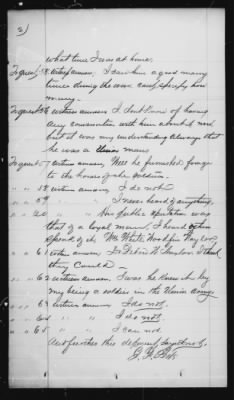 3)
what time I was at home.
witness answers, I saw him a good many
times during the war can't specify how
many.
witness answers I don't know of having
any conversation with him about it and
but it was my understanding always that
he was a Union man.
witness answers, Well he furnished forage
to the horses of the soldiers.
" " 58 witness answers I do not.
" " 59 " " I never heard of anything.
" " 60 " " His public reputation was
that of a loyal man, I heard others
speak of it. Wm White
" " 61 witness answers I think
they could.
" " 62 witness answers I was he knew it by
my being a soldier in the Union army.
" " 63 witness answers I do not.
" " 64 " " I do not.
" " 65 " " I can not.
And further this deponent